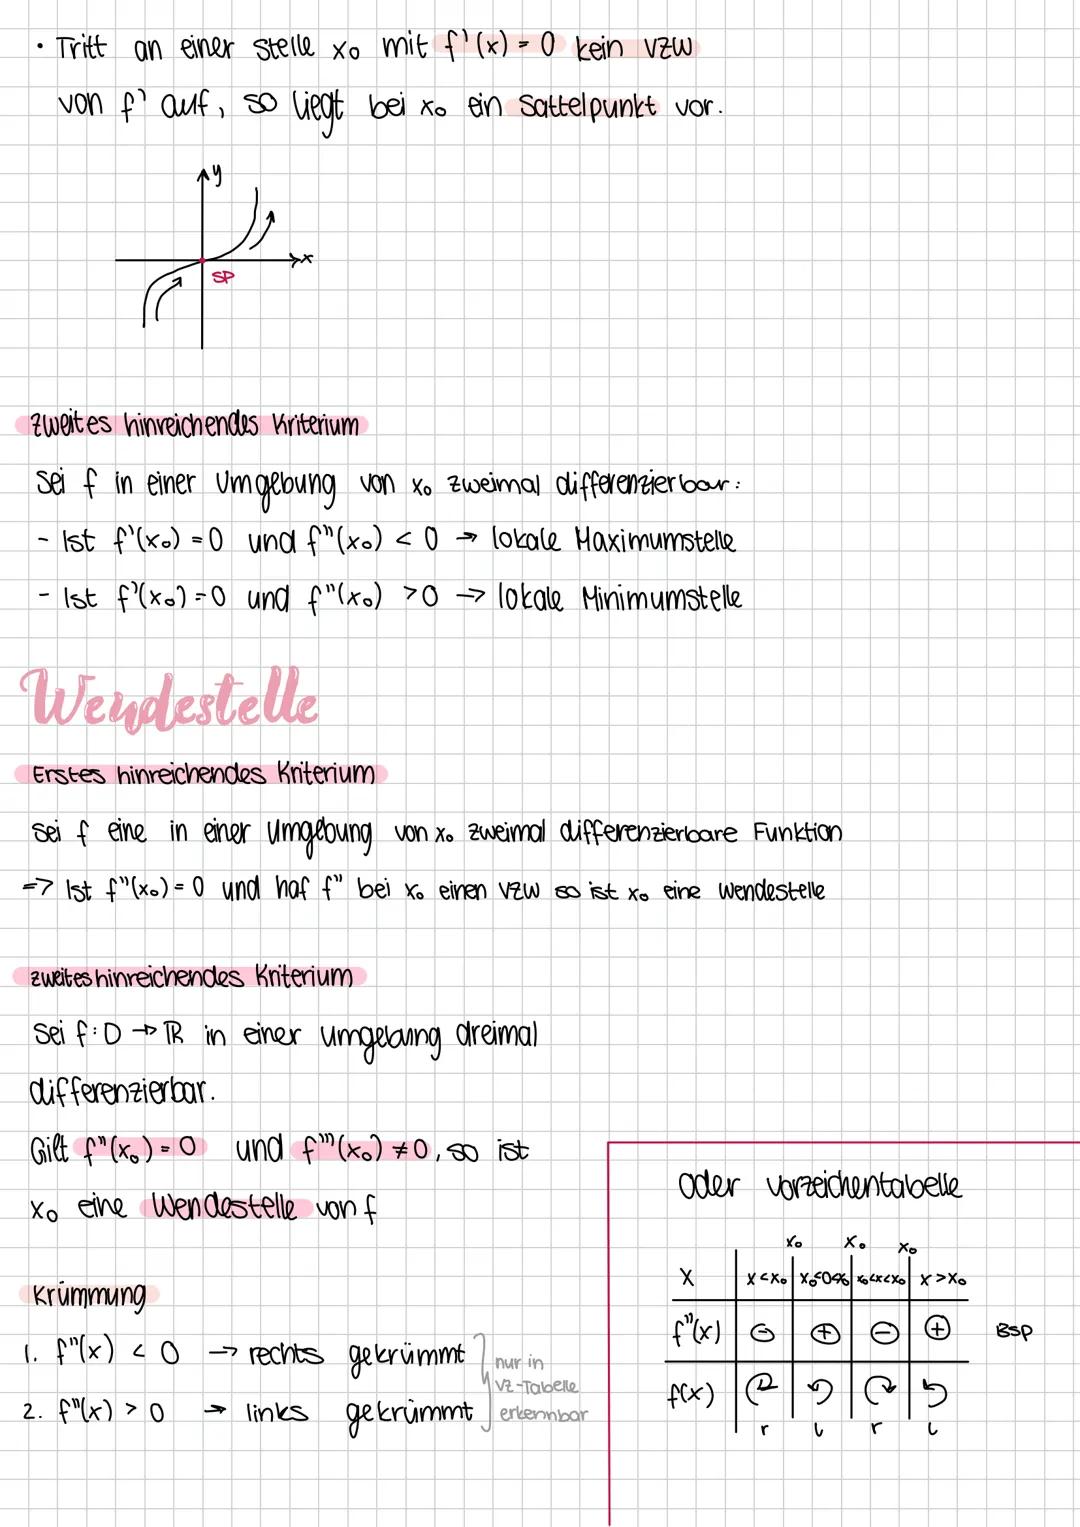 • Tritt an einer stelle x₀ mit f'(x) = 0 kein VZW
von f' auf, so liegt bei x₀ ein Sattelpunkt vor.
y
x
SP
Zweites hinreichendes Kriterium
Sei f in einer Umgebung von x₀ zweimal differenzierbar:
- Ist f'(x₀) = 0 und f"(x₀) < 0 → lokale Maximumstelle
- Ist f'(x₀) = 0 und f"(x₀) > 0 → lokale Minimumstelle
Wendestelle
Erstes hinreichendes Kriterium
Sei f eine in einer Umgebung von x₀ zweimal differenzierbare Funktion
=> Ist f"(x₀) = 0 und haf f" bei x₀ einen VZW so ist x₀ eine Wendestelle
zweites hinreichendes Kriterium
Sei f: D → ℝ in einer Umgebung dreimal
differenzierbar.
Gilt f"(x₀) = 0 und f"'(x₀) ≠ 0, so ist
x₀ eine Wendestelle von f
oder Vorzeichentabelle
x₀ x₀ x₀
X x<x₀ x₀<x<x₀ x>x₀
f"(x) ⊖ ⊕ ⊖ ⊕ BSP
f(x)
r l r l
Krümmung
1. f"(x) < 0 → rechts gekrümmt
2. f"(x) > 0 → links gekrümmt
nur in
VZ-Tabelle
erkennbar